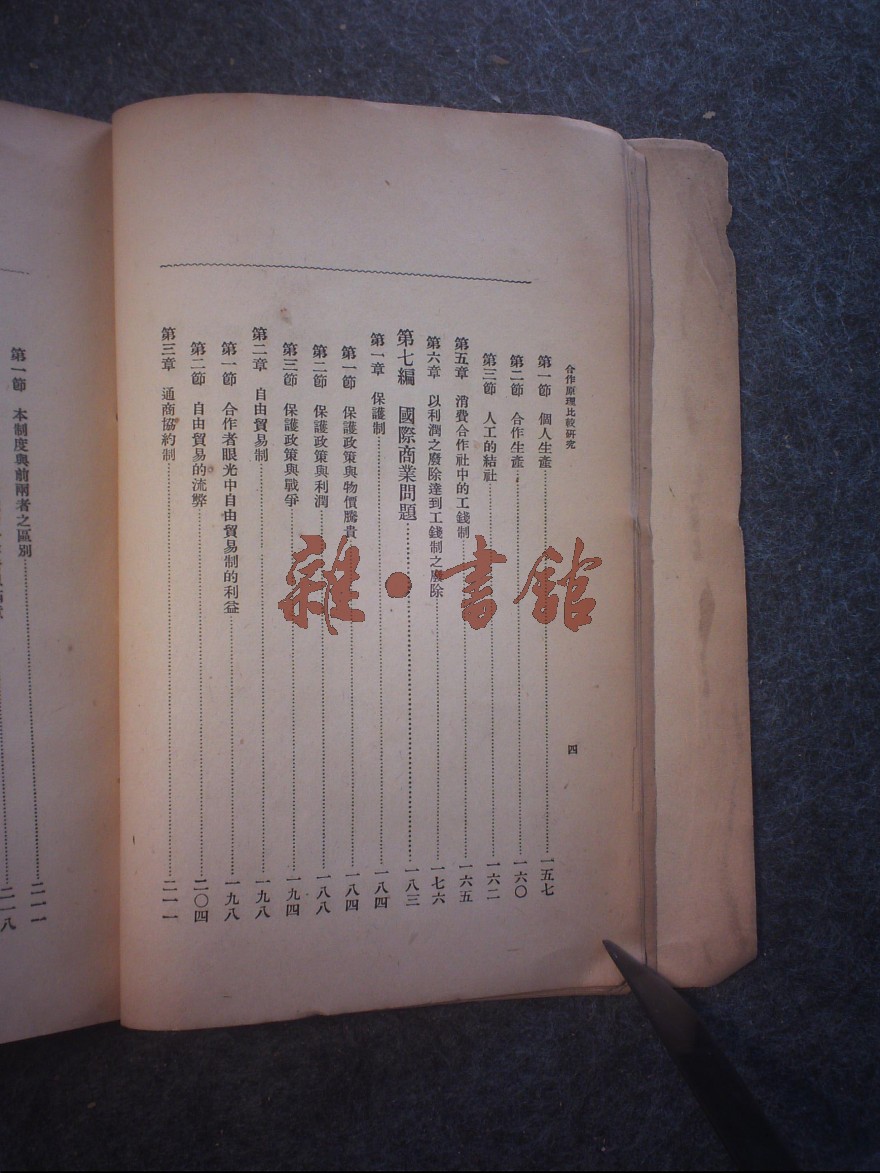 合作原理比較硏究
四
第一節 個人生產 一五七
第二節 合作生產 一六〇
第三節 人工的結社 一六二
第五章 消費合作社中的工錢制 一六五
第六章 以利潤之廢除達到工錢制之廢除 一七六
第七編 國際商業問題 一八三
第一章 保護制 一八四
第一節 保護政策與物價騰貴 一八四
第二節 保護政策與利潤 一八八
第三節 保護政策與戰爭 一九四
第二章 自由貿易制 一九八
第一節 合作者眼光中自由貿易制的利益 一九八
第二節 自由貿易的流弊 二〇四
第三章 通商協約制 二一一
第一節 本制度與前兩者之區別 二一一
二一八
雜·書館